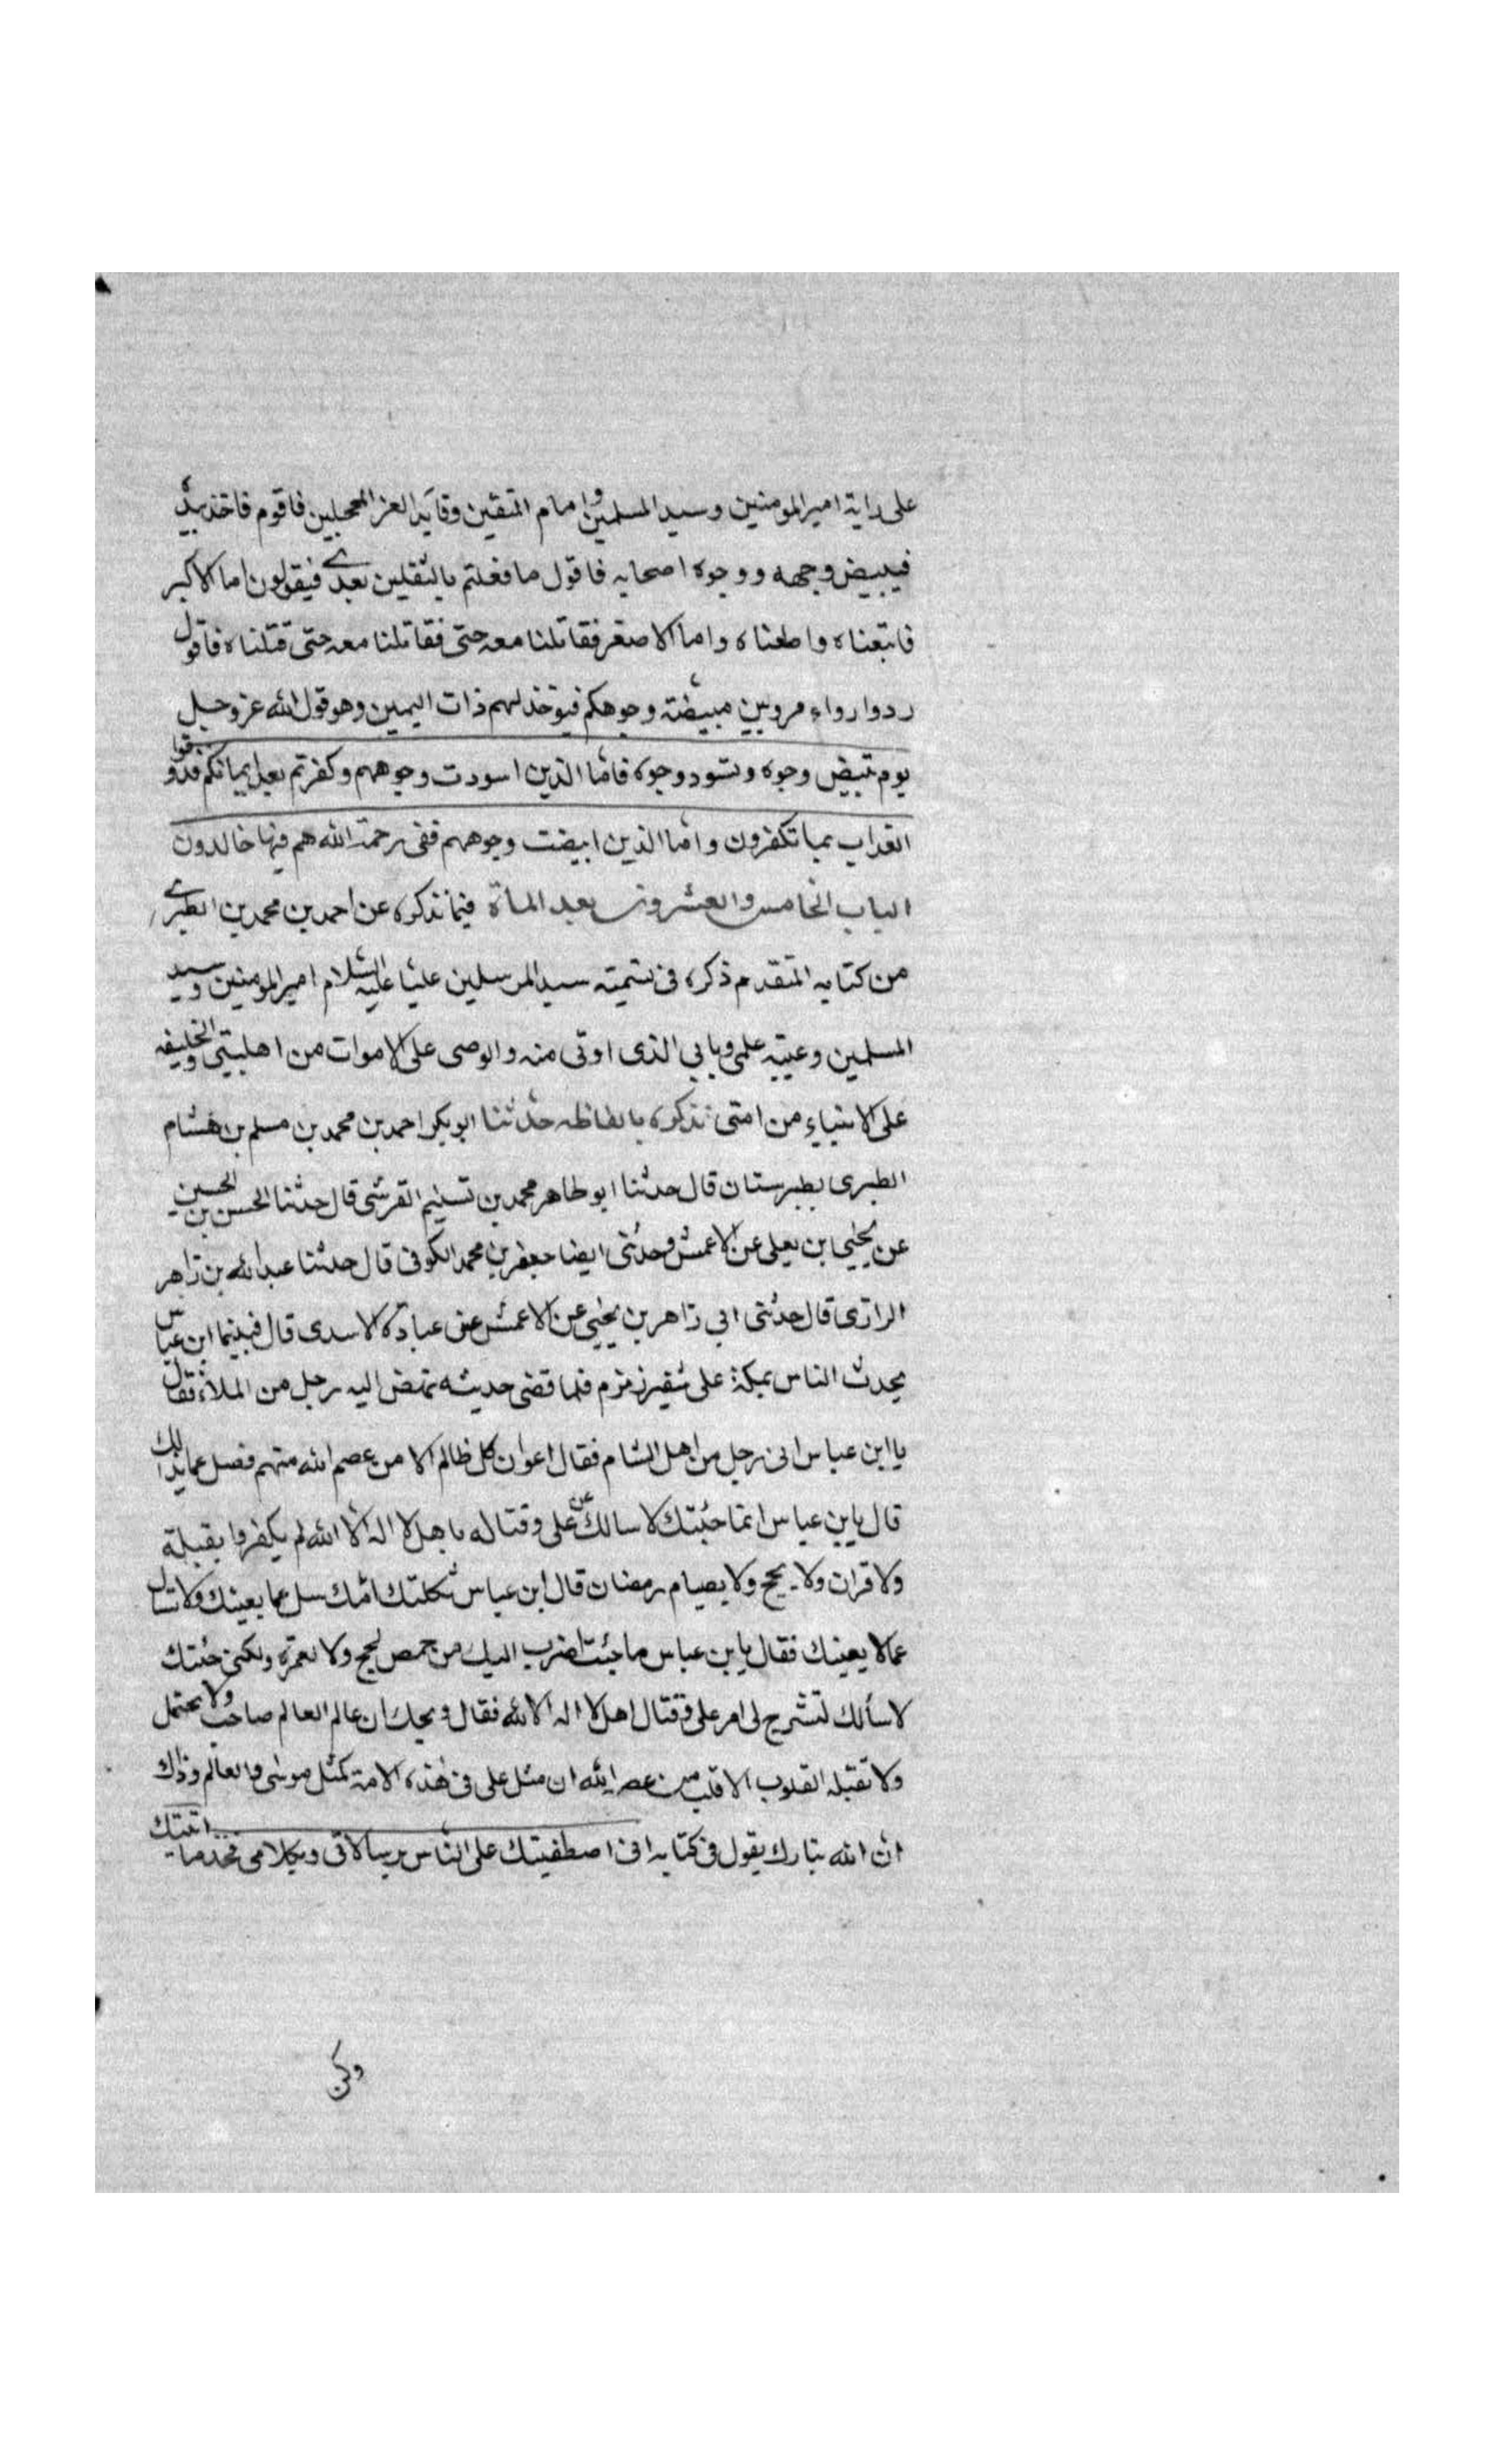 على راية امير المومنين وسيد المسلمين وامام المتقين وقايد الغر المحجلين فاقوم فاخذ بيده
فيبيض وجهه ووجوه اصحابه فاقول ما فعلتم بالثقلين بعدي فيقولون اما الاكبر
فاتبعناه واطعناه واما الاصغر فقاتلنا معه حتى فقاتلنا معه حتى قتلناه فاقول
ردوا رواء مرويين مبيضة وجوهكم فيوخذ لهم ذات اليمين وهو قول الله عز وجل
يوم تبيض وجوه وتسود وجوه فاما الذين اسودت وجوههم وكفرتم بعد ايمانكم فذوقوا
العذاب بما تكفرون واما الذين ابيضت وجوههم ففى رحمة الله هم فيها خالدون
الباب الخامس والعشرون بعد المأة فيما نذكره عن احمد بن محمد بن الطبري
من كتابه المتقدم ذكره فى تسميته سيد المرسلين عليا عليه السلام امير المومنين وسيد
المسلمين وعيبه علمى وبابي الذى اوتى منه والوصى على الاموات من اهلبيتى والخليفه
على الاحياء من امتى نذكره بالفاظه حدثنا ابوبكر احمد بن محمد بن مسلم بن هشام
الطبرى بطبرستان قال حدثنا ابو طاهر محمد بن تسنيم القرشى قال حدثنا الحسن بن الحسين
عن يحيى ابن يعلى عن الاعمش وحدثنى ايضا جعفر بن محمد الكوفى قال حدثنا عبد الله بن زاهر
الرازى قال حدثنى ابى زاهر بن يحيى عن الاعمش عن عباده الاسدى قال فبينما ابن عباس
يحدث الناس بمكة على شفير زمزم فلما قضى حديثه نهض اليه رجل من الملاء فقال
يا ابن عباس انى رجل من اهل الشام فقال اعوان كل ظالم الا من عصم الله منهم فصل عما بدالك
قال يابن عباس انما جئتك لاسالك عن على وقتاله باهل لا اله الا الله لم يكفروا بقبلة
ولا قران ولا بحج ولا بصيام رمضان قال ابن عباس ثكلتك امك سل عما يعنيك ولا تسال
عما لا يعنيك فقال يابن عباس ما جئت اضرب اليك من حمص لحج ولا لعمرة ولكنى جئتك
لاسألك لتشرح لى امر على وقتال اهل لا اله الا الله فقال ويحك ان عالم العالم صاحب ولا يحتمل
ولا تقبله القلوب الا قلب من عصم الله ان مثل على فى هذه الامة كمثل موسى والعالم وذلك
ان الله تبارك يقول فى كتابه انى اصطفيتك على الناس برسالاتى وبكلامى فخذ ما اتيتك
وكن